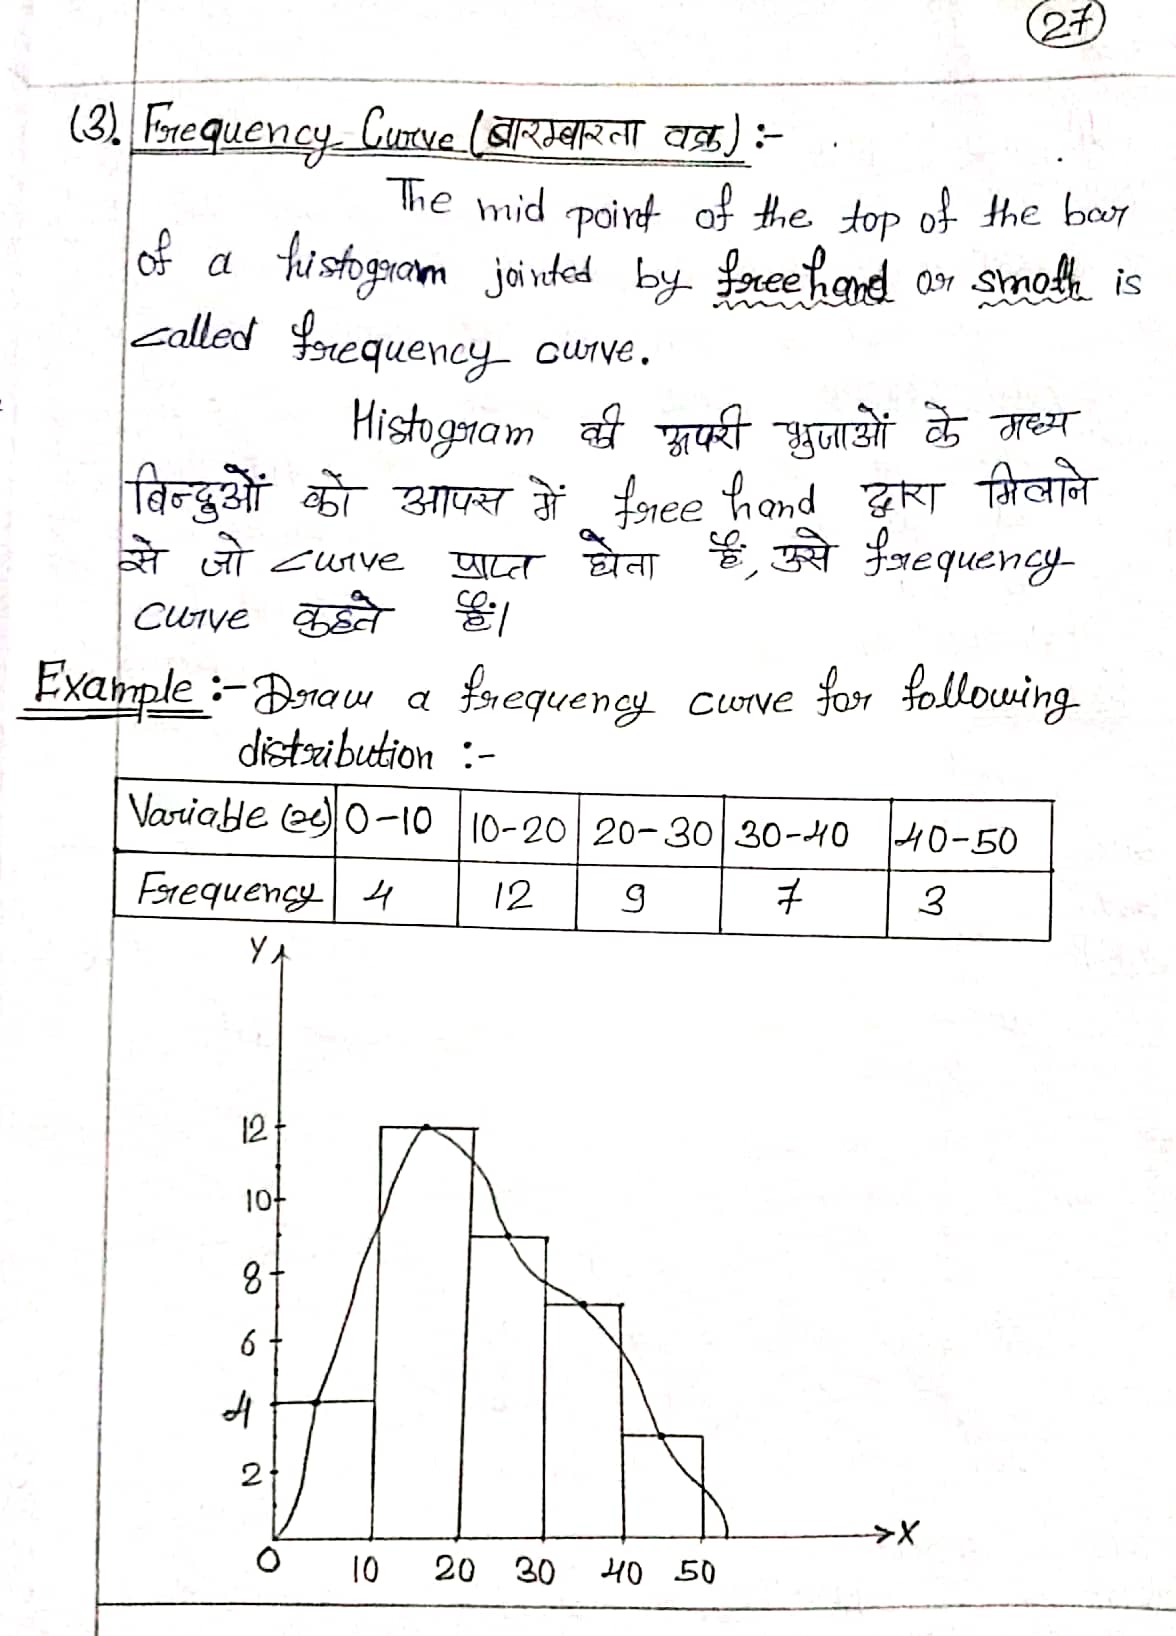 27
(3). Frequency Curve (बारम्बारता वक्र) :-
The mid point of the top of the bar
of a histogram jointed by freehand or smoth is
called frequency curve.
Histogram की ऊपरी भुजाओं के मध्य
बिन्दुओं को आपस में free hand द्वारा मिलाने
से जो curve प्राप्त होता हैं, उसे frequency
curve कहते हैं।
Example :- Draw a frequency curve for following
distribution :-
Variable (x) 0-10 10-20 20-30 30-40 40-50
Frequency 4 12 9 7 3
Y
12
10
8
6
4
2
X
0 10 20 30 40 50